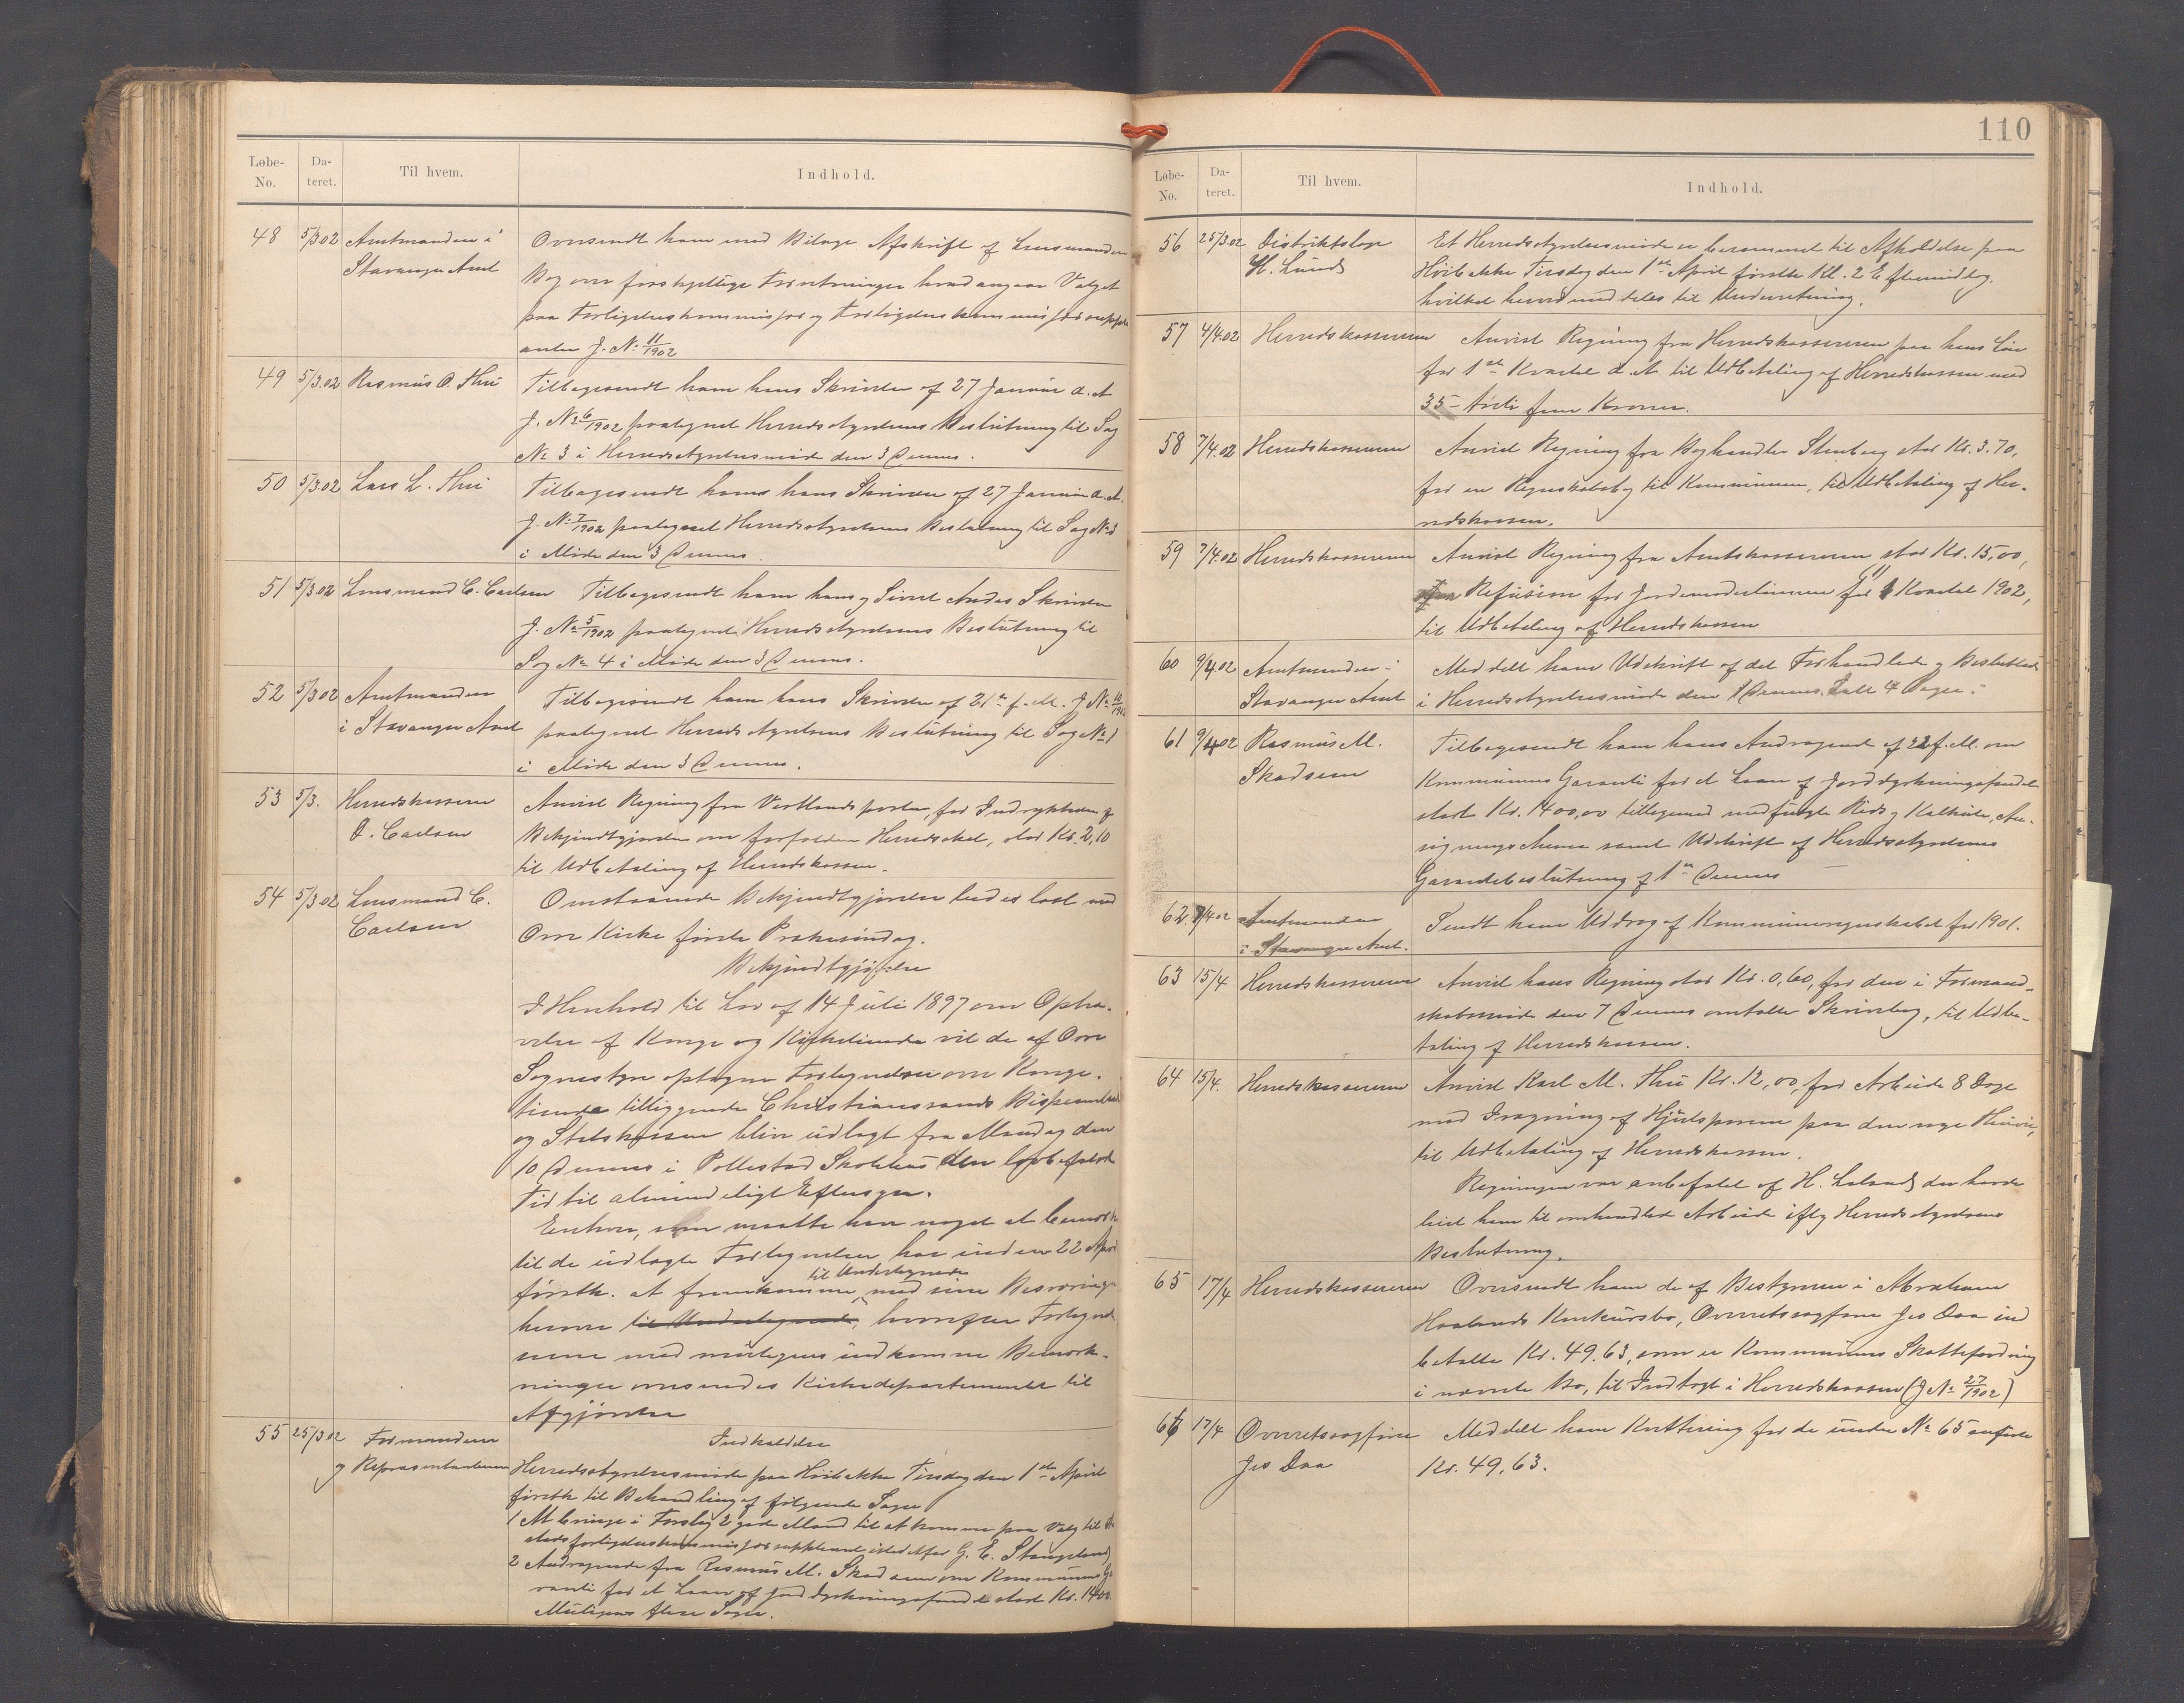 Løbe-No. Da-teret. Til hvem. Indhold.
48 5/3 02 Amtmanden i Stavanger Amt
Oversendt ham med Bilage Afskrift af Lensmandens
Bog over forskjellige Forretninger hvad angaar Valget
paa Forligelseskommissær og Forligelseskommissærsupple
anter J. No. 11/1902
49 5/3.02 Rasmus O. Thu
Tilbagesendt ham hans Skrivelse af 27 Januar d. A
J. No 6/1902 paategnet Herredsstyrelsens Beslutning til Sag
No 3 i Herredsstyrelsesmøde den 3 Dennes.
50 5/3.02 Lars L. Thu
Tilbagesendt ham hans Skrivelse af 27 Januar d. A.
J. No. 7/1902 paategnet Herredsstyrelsens Beslutning til Sag No 3
i Møde den 3 Dennes.
51 5/3.02 Lensmand C. Carlsen
Tilbagesendt ham hans og Sivert Andas Skrivelse
J. No 5/1902 paategnet Herredsstyrelsens Beslutning til
Sag No 4 i Møde den 3 Dennes.
52 5/3 02 Amtmanden i Stavanger Amt
Tilbagesendt ham hans Skrivelse af 21de f. M. J No 10/1902
paategnet Herredsstyrelsens Beslutning til Sag No 1
i Møde den 3 Dennes.
53 5/3. Herredskasserer O. Carlsen
Anvist Regning fra Vestlandsposten, for Indrykkelse af
Bekjendtgjørelse om forfalden Herredsskat, stor Kr. 2,10
til Udbetaling af Herredskassen.
54 5/3 02 Lensmand C. Carlsen
Omstaaende Bekjendtgjørelse bedes læst ved
Orre Kirke første Prækesøndag.
Bekjendtgjørelse
I Henhold til Lov af 14 Juli 1897 om Ophæ-
velse af Konge og Kirketiende vil de af Orre
Sognestyre optagne Fortegnelser over Konge-
tiende tilliggende Christianssands Bispeembede
og Statskassen blive udlagt fra Mandag den
10 Dennes i Pollestad Skolehus den lovbefalede
Tid til almindeligt Eftersyn.
Enhver, som maatte have noget at bemærke
til de udlagte Fortegnelser har inden 22 April
førstk. at fremkomme til Undertegnede med sine Besværinger
herover til Undertegnede, hvorefter Fortegnel
serne med muligens indkomne Bemærk-
ninger oversendes Kirkedepartementet til
Afgjørelse
55 25/3 02 Formanden og Repræsentanterne
Indkaldelse
Herredsstyrelsesmøde paa Høibakke Tirsdag den 1ste April
førstk til Behandling af følgende Sager
1 At bringe i Forslag 2 gode Mænd til at komme paa Valg til
forligelseskommissærsuppleant istedetfor G. E. Stangeland
2 Andragende fra Rasmus M. Skadsem om Kommunens Ga
ranti for et Laan af Jorddyrkningsfondet stort Kr. 1400
Muligens flere Sager.
110
Løbe-No. Da-teret. Til hvem. Indhold.
56 25/3.02 Distriktslæge H. Lunds
Et Herredsstyrelsesmøde er berammet til Afholdelse paa
Høibakke Tirsdag den 1ste April førstk Kl. 2 Eftermiddag.
hvilket herved meddeles til Underretning.
57 4/4.02 Herredskassereren
Anvist Regning fra Herredskassereren paa hans Løn
for 1ste Kvartal d. A til Udbetaling af Herredskassen med
35 - træti fem Kroner.
58 7/4.02 Herredskassereren
Anvist Regning fra Boghandler Stenberg stor Kr. 3.70,
for en Regnskabsbog til Kommunen, til Udbetaling af Her-
redskassen.
59 7/4.02 Herredskassereren
Anvist Regning fra Amtskassereren stor Kr. 15,00,
Refusion for Jordemoderlønnen for 1 Kvartal 1902,
til Udbetaling af Herredskassen
60 9/4 02 Amtmanden i Stavanger Amt
Meddelt ham Udskrift af det Forhandlede og Besluttede
i Herredsstyrelsesmøde den 1 Dennes, Ialt 4 Sager.
61 9/4 02 Rasmus M. Skadsem
Tilbagesendt ham hans Andragende af 22 f. M. om
Kommunens Garanti for et Laan af Jorddyrkningsfondet
stort Kr. 1400,00 tilligemed medfulgte Rids og Kalkule, An-
søgningsskema samt Udskrift af Herredsstyrelsens
Garantibeslutning af 1ste Dennes
62. 9/4 02 Amtmanden i Stavanger Amt.
Sendt ham Uddrag af Kommuneregnskabet for 1901.
63 15/4 Herredskassereren
Anvist hans Regning stor Kr. 0,60, for den i Formand-
skabsmøde den 7 Dennes omtalte Skrivebog, til Udbe-
taling af Herredskassen.
64 15/4. Herredskassereren
Anvist Karl M. Thu Kr. 12,00, for Arbeide 8 Dage
med Iragning af Hjulsporene paa den nye Høivei,
til Udbetaling af Herredskassen.
Regningen var anbefalet af H. Laland, der havde
leiet ham til omhandlet Arbeide ifølg Herredsstyrelsens
Beslutning.
65 17/4 Herredskassereren
Oversendt ham de af Bestyreren i Abraham
Haalands Konkursbo, Overretssagfører Jes Daa ind
betalte Kr. 49.63, som er Kommunens Skattefordring
i nævnte Bo, til Indtægt i Herredskassen (J No 27/1902)
66 17/4 Overretssagfører Jes Daa
Meddelt ham Kvittering for de under No 65 anførte
Kr. 49,63.